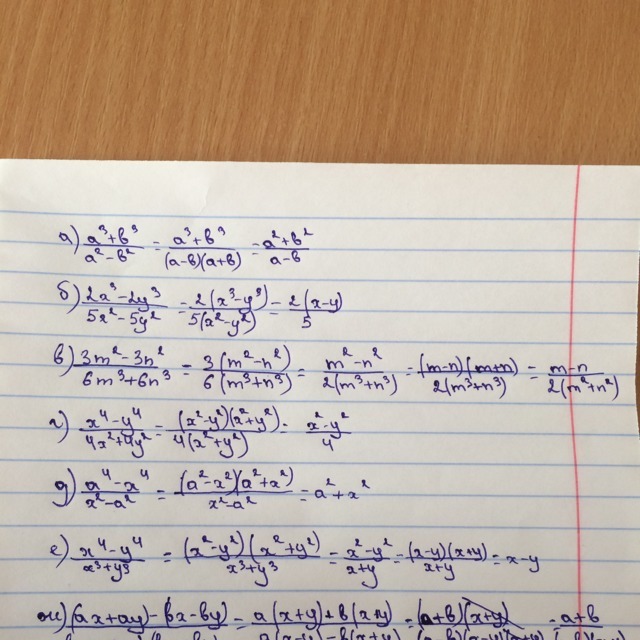 а) (a³+b³)/(a²-b²) = (a³+b³)/((a-b)(a+b)) = (a²+b²)/(a-b)
б) (2a³-2y³)/(5x²-5y²) = 2(x³-y³)/5(x²-y²) = 2(x-y)/5
в) (3m²-3n²)/(6m³+6n³) = 3(m²-n²)/6(m³+n³) = (m²-n²)/2(m³+n³) = (m-n)(m+n)/2(m³+n³) = (m-n)/2(m²+n²)
г) (x⁴-y⁴)/(4x²+4y²) = (x²-y²)(x²+y²)/4(x²+y²) = (x²-y²)/4
д) (a⁴-x⁴)/(x²-a²) = (a²-x²)(a²+x²)/(x²-a²) = a²+x²
е) (x⁴-y⁴)/(x³+y³) = (x²-y²)(x²+y²)/(x³+y³) = (x²-y²)/(x+y) = (x-y)(x+y)/(x+y) = x-y
ж) (ax+ay)-(bx-by) = a(x+y)+b(x+y) = (a+b)(x+y) = a+b